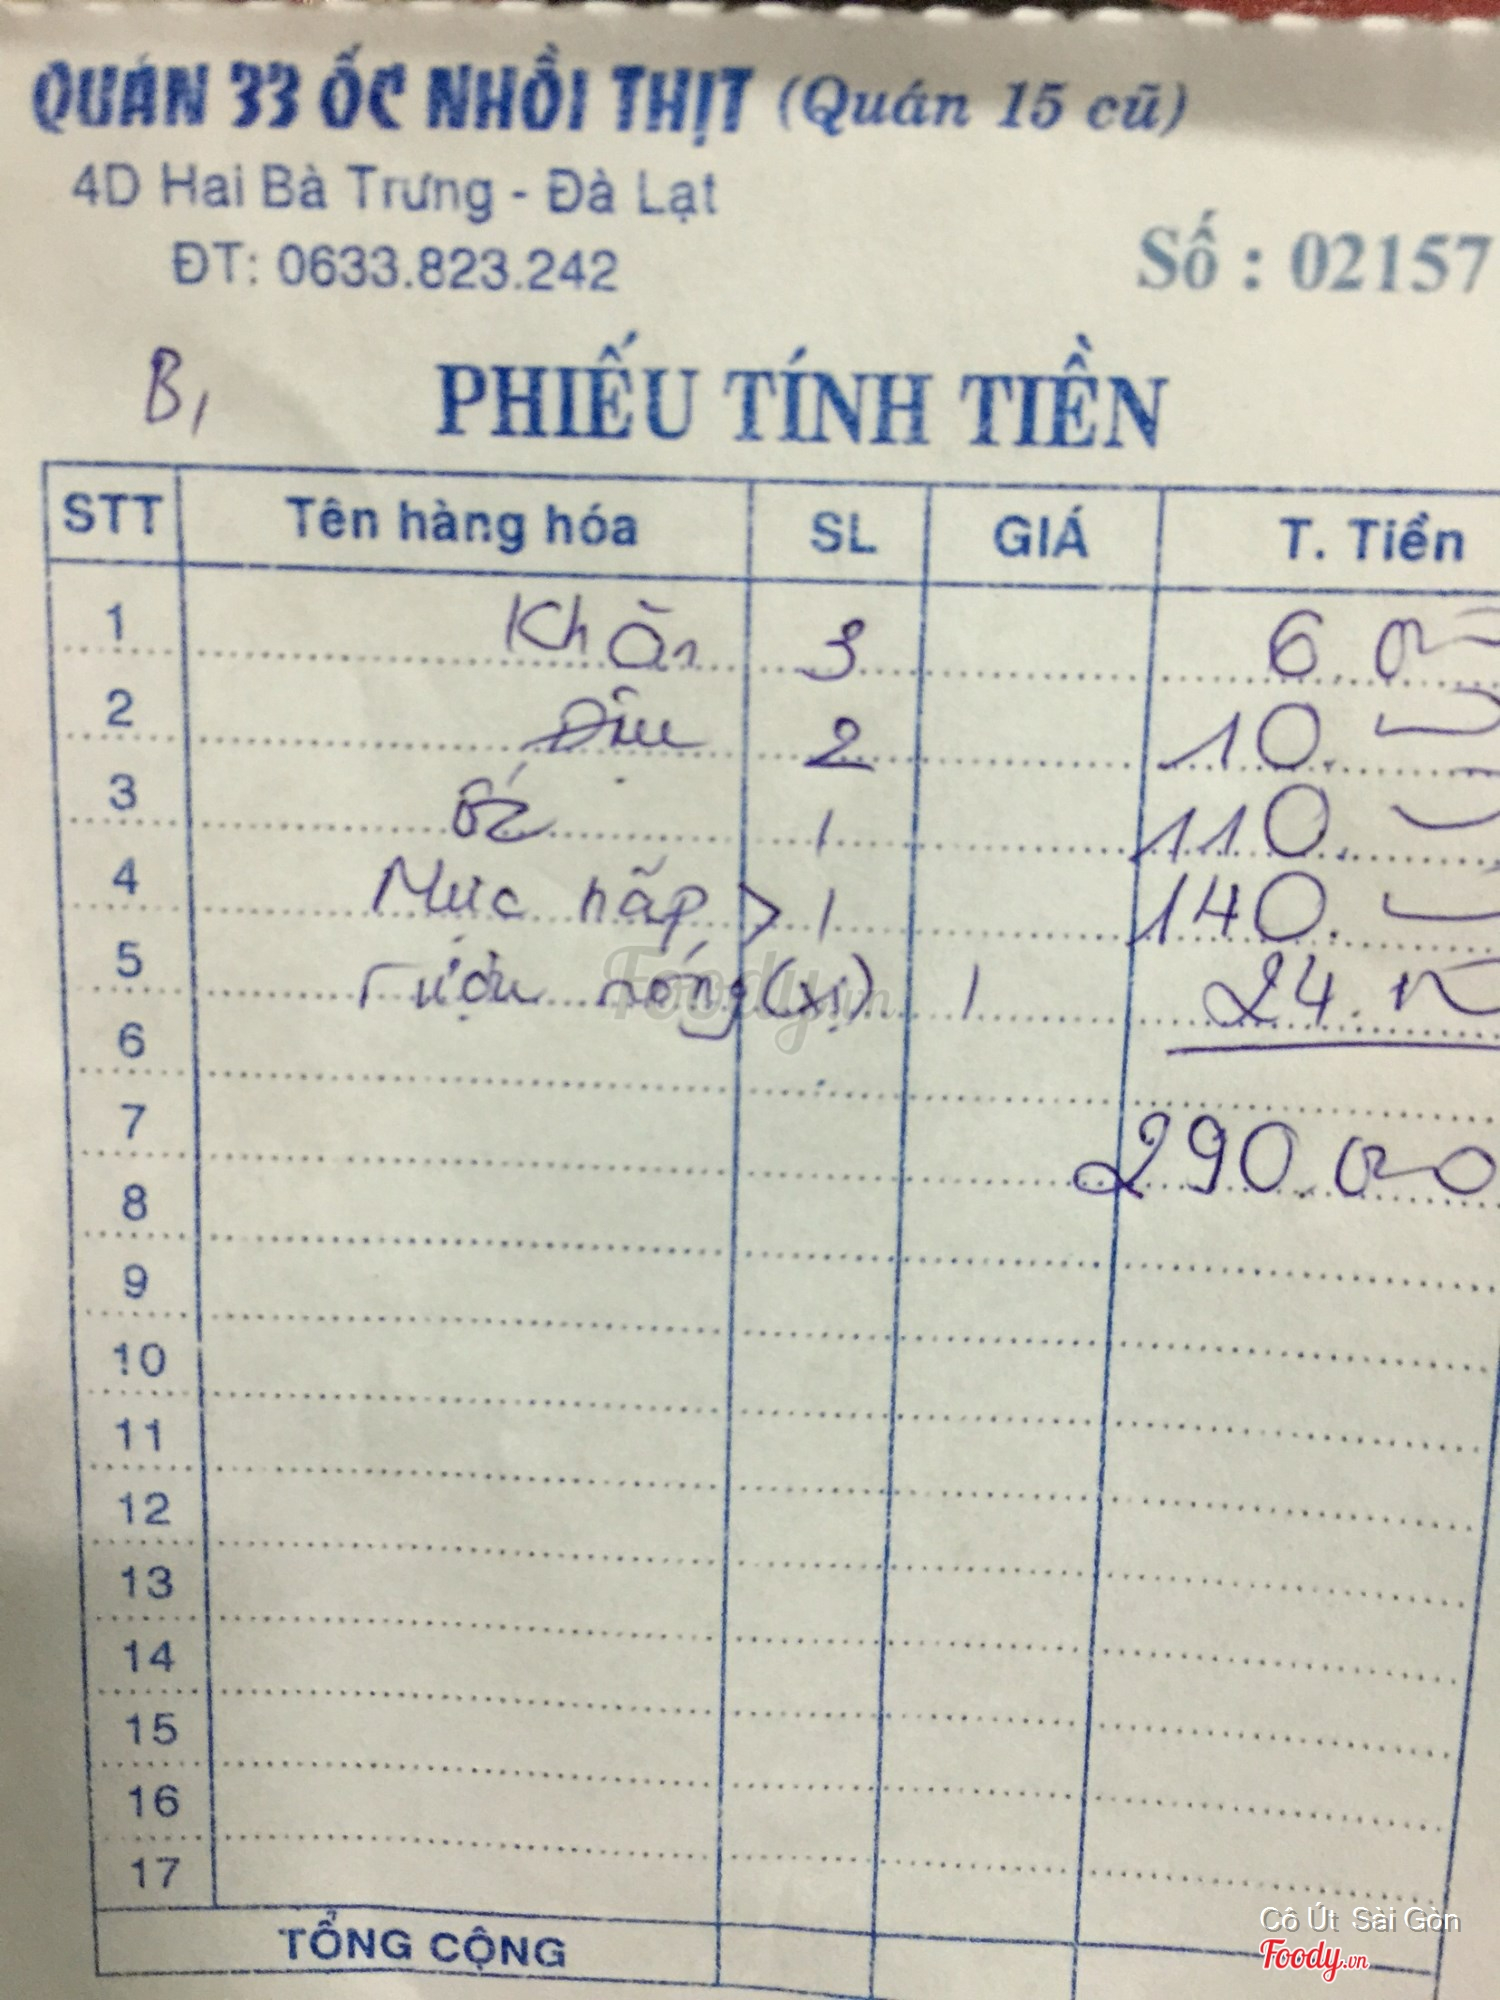 QUÁN 33 ỐC NHỒI THỊT (Quán 15 cũ)
4D Hai Bà Trưng - Đà Lạt
ĐT: 0633.823.242
Số : 02157
B1
PHIẾU TÍNH TIỀN
STT Tên hàng hóa SL GIÁ T. Tiền
1 Khăn 3 6.000
2 Đậu 2 10.
3 Ốc 1 110.
4 Mực hấp > 1 140.
5 rượu nóng (xị) 1 24.
6
7 290.000
8
9
10
11
12
13
14
15
16
17
TỔNG CỘNG
Foody.vn
Cô Út Sài Gòn
Foody.vn